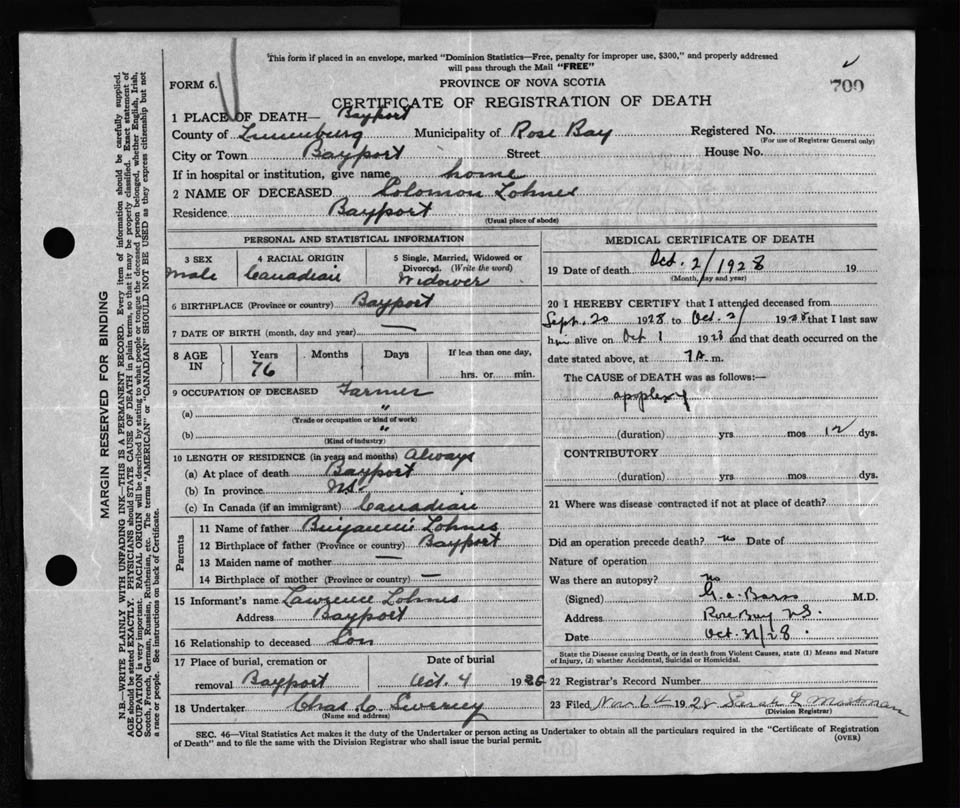 This form if placed in an envelope, marked "Dominion Statistics—Free, penalty for improper use, $300," and properly addressed
will pass through the Mail "FREE"
FORM 6.
PROVINCE OF NOVA SCOTIA
700
CERTIFICATE OF REGISTRATION OF DEATH
1 PLACE OF DEATH— Bayport
County of Lunenburg Municipality of Rose Bay Registered No.
(For use of Registrar General only)
City or Town Bayport Street House No.
If in hospital or institution, give name home
2 NAME OF DECEASED Solomon Lohnes
Residence Bayport
(Usual place of abode)
PERSONAL AND STATISTICAL INFORMATION
3 SEX 4 RACIAL ORIGIN 5 Single, Married, Widowed or
Divorced. (Write the word)
Male Canadian Widower
6 BIRTHPLACE (Province or country) Bayport
7 DATE OF BIRTH (month, day and year) —
8 AGE IN Years Months Days If less than one day,
76 hrs. or min.
9 OCCUPATION OF DECEASED Farmer
(a) "
(Trade or occupation or kind of work)
(b) "
(Kind of industry)
10 LENGTH OF RESIDENCE (in years and months) Always
(a) At place of death Bayport
(b) In province NS.
(c) In Canada (if an immigrant) Canadian
Parents
11 Name of father Lohnes
12 Birthplace of father (Province or country) Bayport
13 Maiden name of mother —
14 Birthplace of mother (Province or country) —
15 Informant's name Lawrence Lohnes
Address Bayport
16 Relationship to deceased Son
17 Place of burial, cremation or Date of burial
removal Bayport Oct. 4 19
18 Undertaker Chas
(Name and address)
MEDICAL CERTIFICATE OF DEATH
19 Date of death Oct. 2/1928 19
(Month, day and year)
20 I HEREBY CERTIFY that I attended deceased from
Sept. 20 1928 to Oct. 2/ 1928 that I last saw
him alive on Oct 1 1928 and that death occurred on
date stated above, at 7 A. m.
The CAUSE of DEATH was as follows:—
apoplexy
(duration) yrs mos 12 dys.
CONTRIBUTORY
(duration) yrs. mos. dys.
21 Where was disease contracted if not at place of death?
Did an operation precede death? no Date of
Nature of operation
Was there an autopsy? no
(Signed) M.D.
Address Rose Bay NS.
Date Oct. 31/28.
State the Disease causing Death, or in death from Violent Causes, state (1) Means and Nature
of Injury, (2) whether Accidental, Suicidal or Homicidal.
22 Registrar's Record Number
23 Filed Nov 6th 1928 Sarah
(Division Registrar)
SEC. 46—Vital Statistics Act makes it the duty of the Undertaker or person acting as Undertaker to obtain all the particulars required in the "Certificate of Registration
of Death" and to file the same with the Division Registrar who shall issue the burial permit.
(OVER)
MARGIN RESERVED FOR BINDING
N.B.—WRITE PLAINLY WITH UNFADING INK—THIS IS A PERMANENT RECORD. Every item of information should be carefully supplied.
AGE should be stated EXACTLY. PHYSICIANS should STATE CAUSE OF DEATH in plain terms, so that it may be properly classified. Exact statement of
OCCUPATION is very important. RACIAL ORIGIN will be described by stating to what people or tongue the deceased person belonged, whether English, Irish,
Scotch, French, German, Russian, Ruthenian, etc. The terms "AMERICAN" or "CANADIAN" SHOULD NOT BE USED as they express citizenship but not
a race or people. See instructions on back of Certificate.